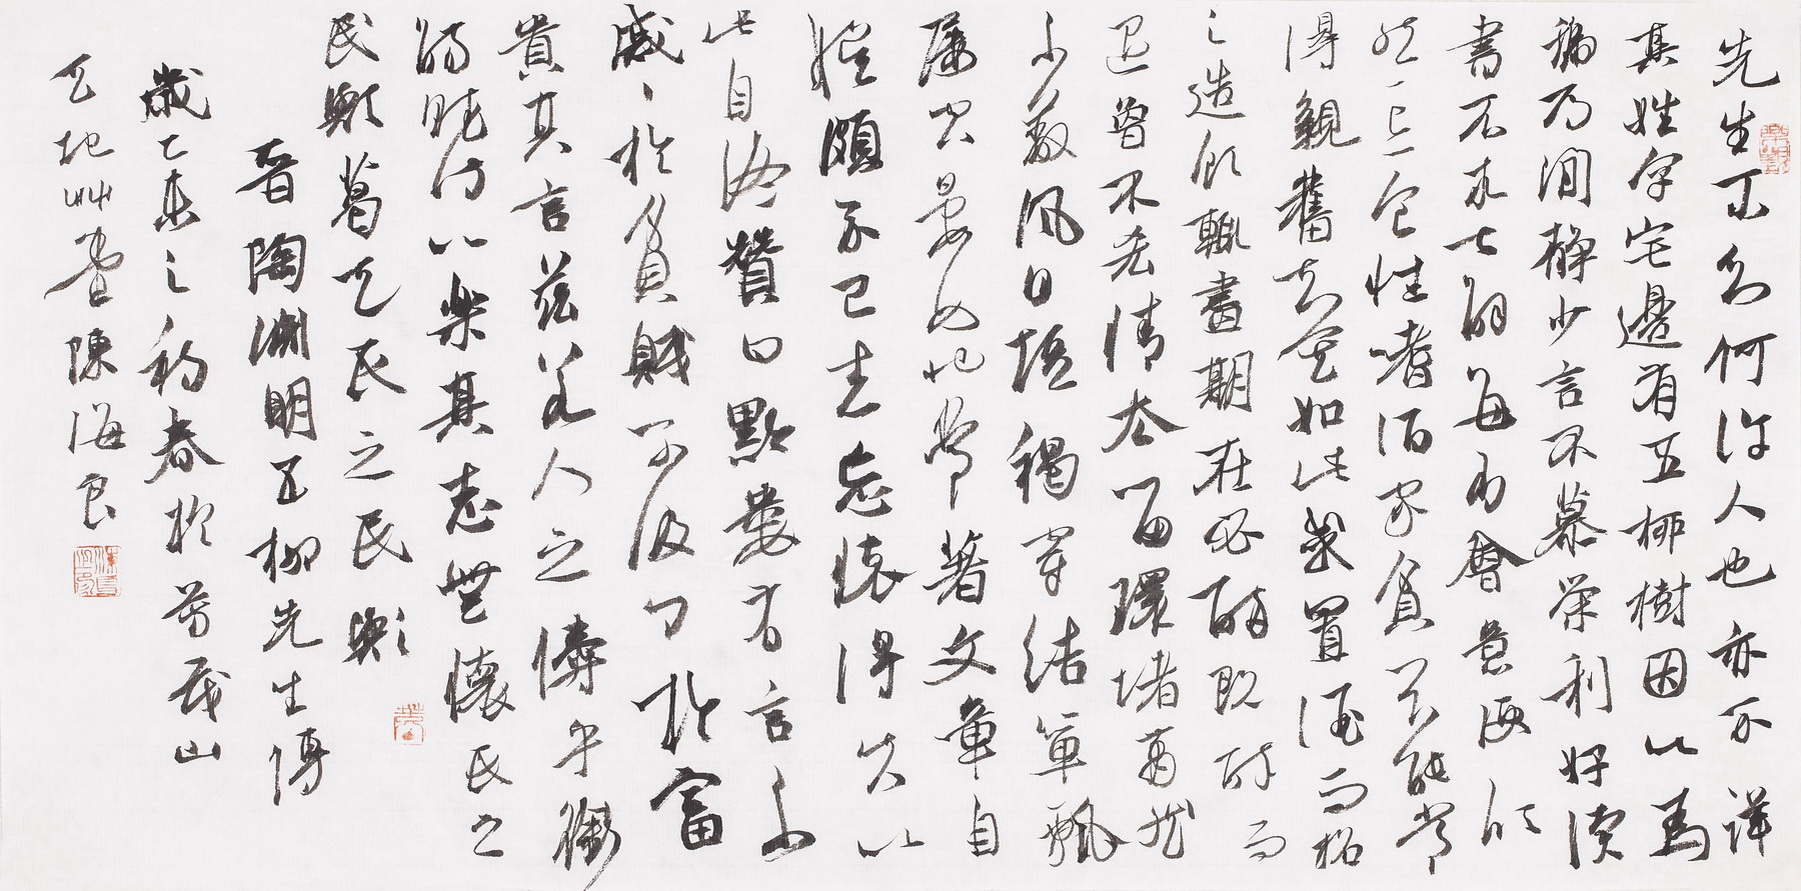 先生不知何許人也亦不詳
其姓字宅邊有五柳樹因以為
號乃閒靜少言不慕榮利好讀
書不求甚解每有會意便欣
然忘食性嗜酒家貧不能常
得親舊知其如此或置酒而招
之造飲輒盡期在必醉既醉而
退曾不吝情去留環堵蕭然
不蔽風日短褐穿結簞瓢
屢空晏如也常著文章自
娛頗示己志忘懷得失以
此自終贊曰黔婁有言不
戚〻於貧賤不汲〻於富
貴其言茲若人之儔乎銜
觴賦詩以樂其志無懷氏之
民歟葛天氏之民歟
晉陶淵明五柳先生傳
歲乙未之初春於茂山
天地草堂陳海良